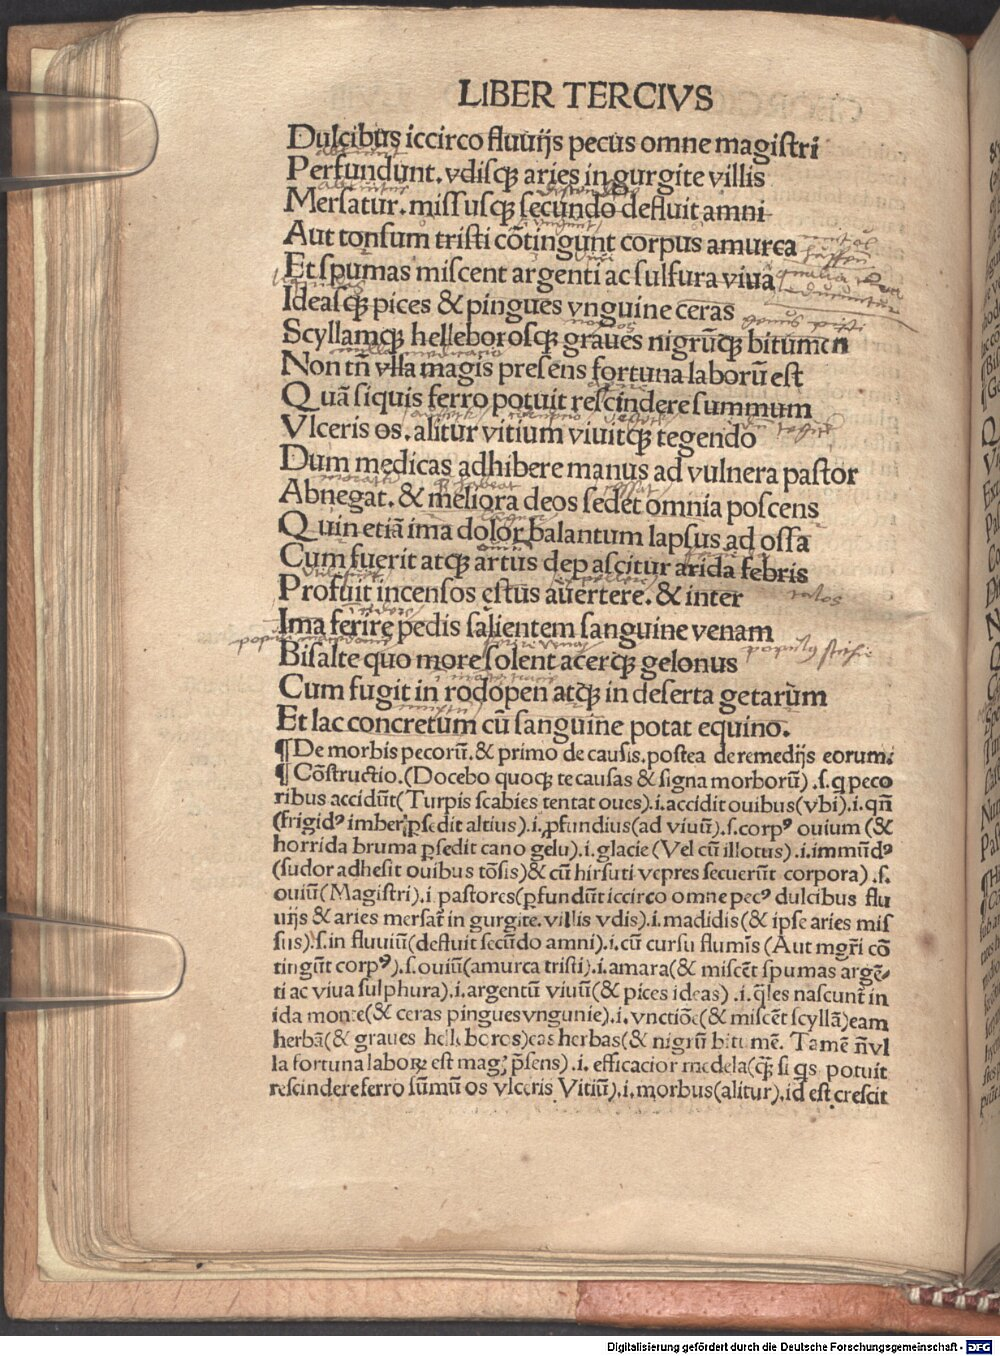 LIBER TERCIVS
Dulcibus iccirco fluuijs pecus omne magiſtri
Perfundunt. vdiſqꝫ aries in gurgite villis
Merſatur. miſſuſqꝫ ſecundo defluit amni
Aut tonſum triſti cōtingunt corpus amurca
Et ſpumas miſcent argenti ac ſulfura viua
Ideaſqꝫ pices & pingues vnguine ceras
Scyllamqꝫ helleboroſqꝫ graues nigrūqꝫ bitumen
Non tñ vlla magis preſens fortuna laborū eſt
Quā ſiquis ferro potuit reſcindere ſummum
Vlceris os. alitur vitium viuitqꝫ tegendo
Dum medicas adhibere manus ad vulnera paſtor
Abnegat. & meliora deos ſedet omnia poſcens
Quin etiā ima dolor balantum lapſus ad oſſa
Cum fuerit atqꝫ artus depaſcitur arida febris
Profuit incenſos eſtus auertere. & inter
Ima ferire pedis ſalientem ſanguine venam
Biſalte quo more ſolent acerqꝫ gelonus
Cum fugit in rodopen atqꝫ in deſerta getarum
Et lac concretum cū ſanguine potat equino.
¶ De morbis pecorū. & primo de cauſis. poſtea de remedijs eorum:
¶ Cōſtructio. (Docebo quoqꝫ te cauſas & ſigna morborū) .ſ. q peco
ribus accidūt (Turpis ſcabies tentat oues) .i. accidit ouibus (vbi) .i. qñ
(frigidꝰ imber ꝑſedit altius) .i. ꝓfundius (ad viuū) .ſ. corpꝰ ouium (&
horrida bruma ꝑſedit cano gelu) .i. glacie (Vel cū illotus) .i. immūdꝰ
(ſudor adheſit ouibus tōſis) & cū hirſuti vepres ſecuerūt corpora) .ſ.
ouiū (Magiſtri) .i paſtores (ꝑfundūt iccirco omne pecꝰ dulcibus flu
uijs & aries merſat̄ in gurgite. villis vdis) .i. madidis (& ipſe aries miſ
ſus) .ſ. in fluuiū (defluit ſecūdo amni) .i. cū curſu flumīs (Aut mgr̄i cō
tingūt corpꝰ) .ſ. ouiū (amurca triſti) .i. amara (& miſcēt ſpumas argē-
ti ac viua ſulphura) .i. argentū viuū (& pices ideas) .i. q̄les naſcunt̄ in
ida monte (& ceras pingues vngunie) .i. vnctiōe (& miſcēt ſcyllā) eam
herbā (& graues helleboros) eas herbas (& nigrū bitumē. Tamē n̄vl
la fortuna laboꝝ eſt magꝭ p̄ſens) .i. efficacior medela (q̄ꝫ ſi qs potuit
reſcindere ferro ſūmū os vlceris Vitiū) .i. morbus (alitur) .id eſt creſcit
Digitalisierung gefördert durch die Deutsche Forschungsgemeinschaft - DFG